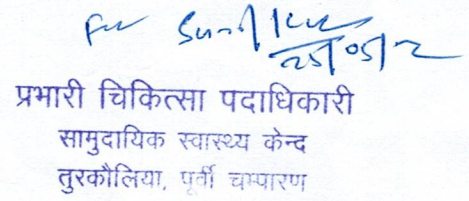 For
25/05/2
प्रभारी चिकित्सा पदाधिकारी
सामुदायिक स्वास्थ्य केन्द
तुरकौलिया, पूर्वी चम्पारण